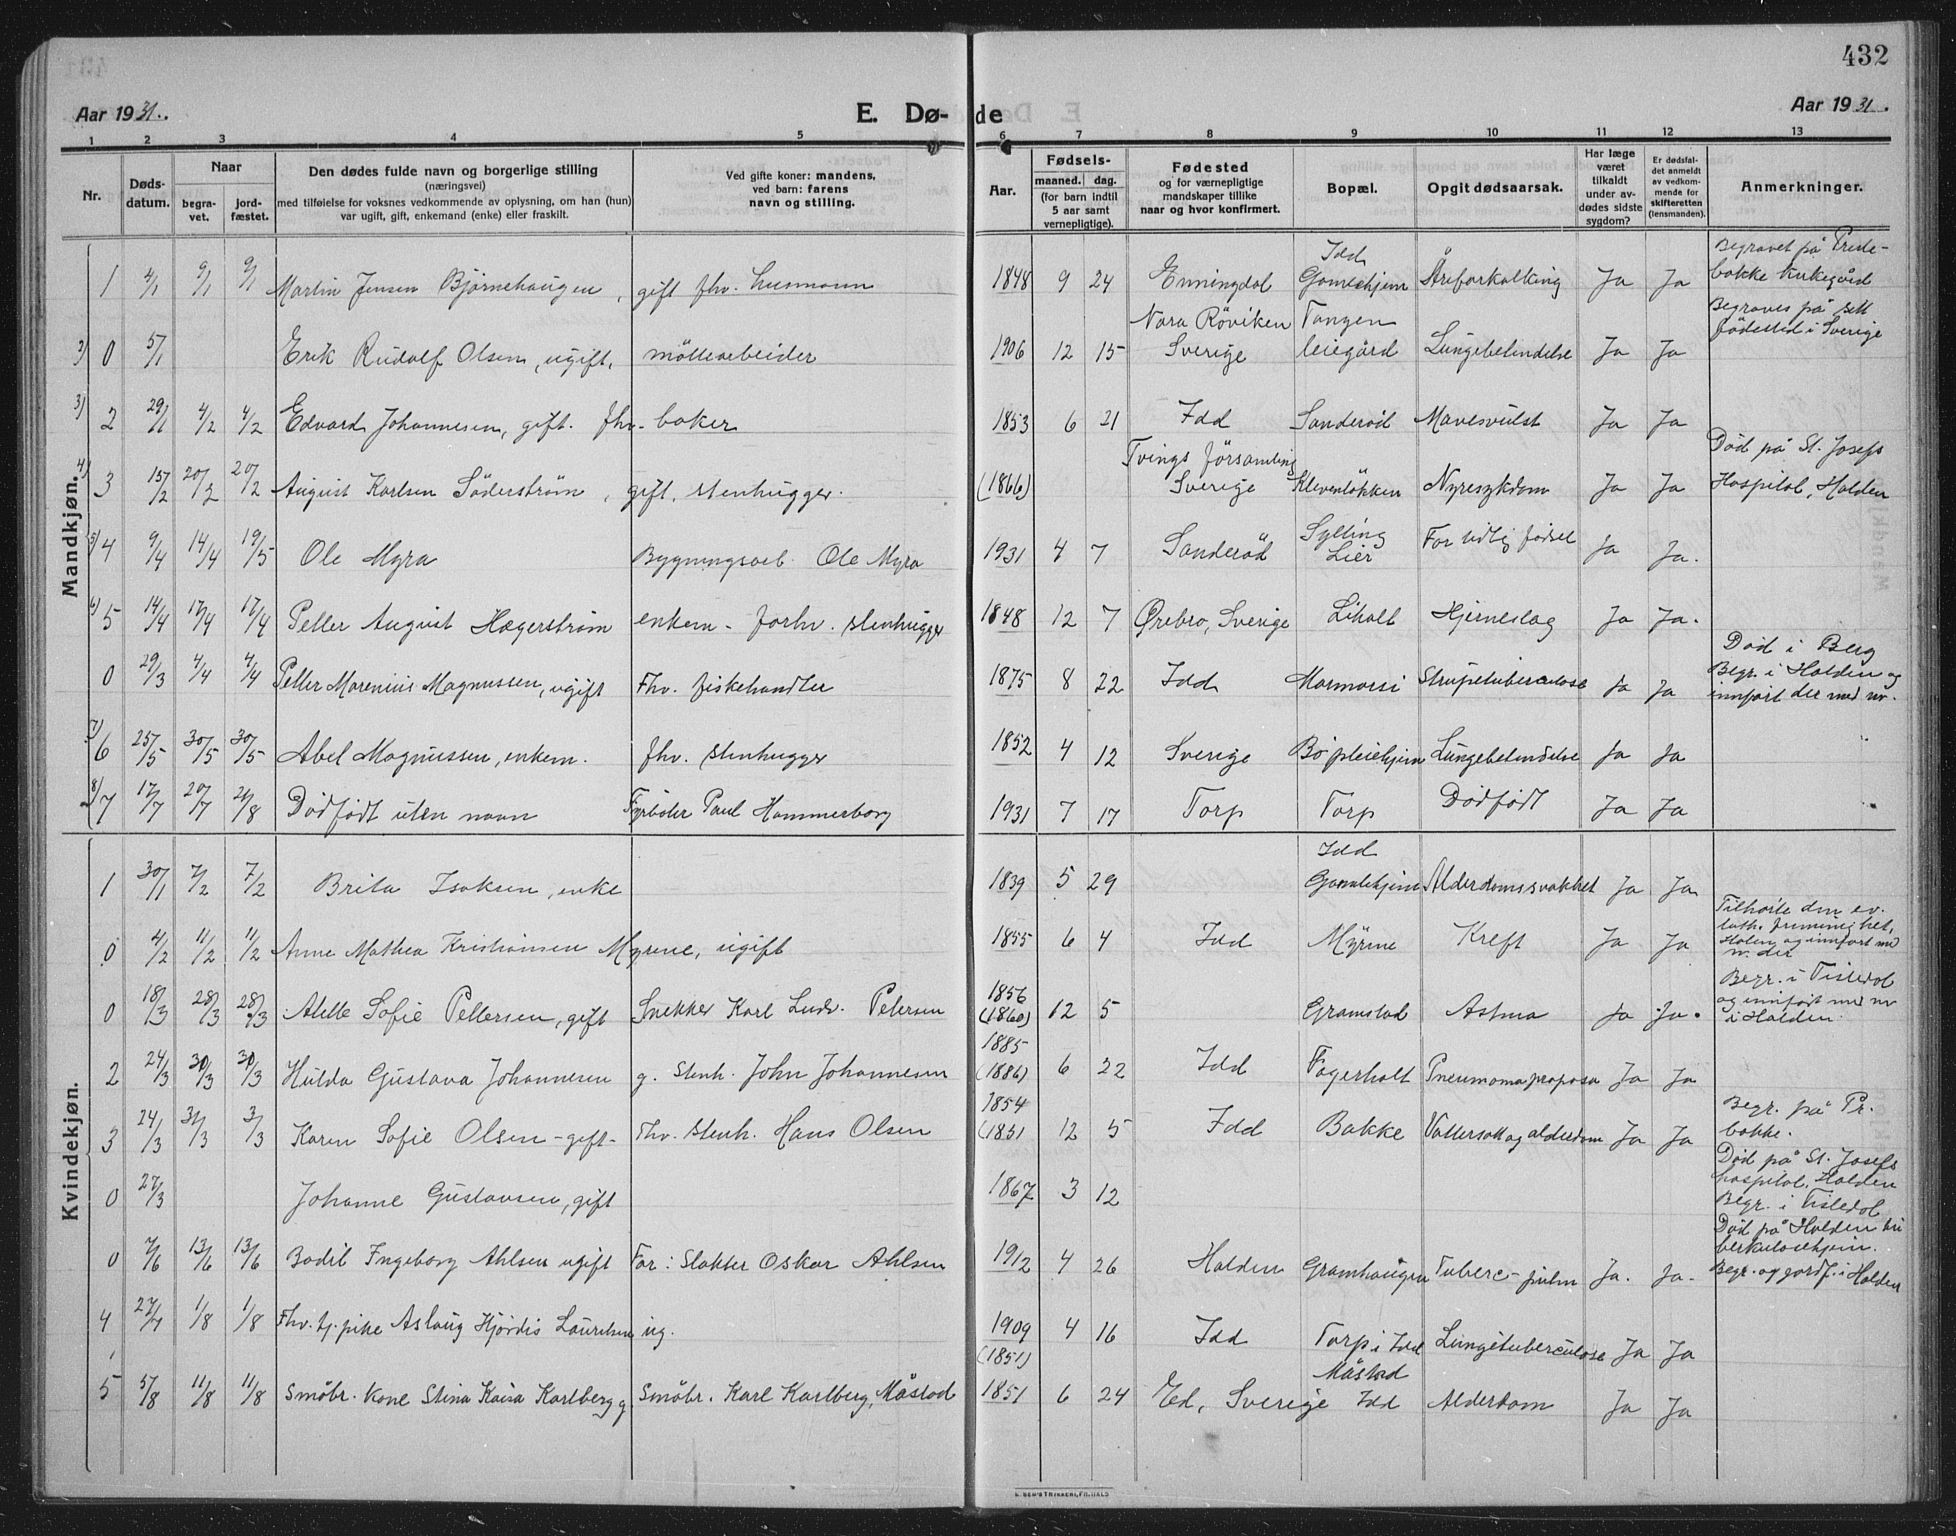 432
Aar 1931.
E. Dø-de
Aar 1931.
1 2 3 4 5 6 7 8 9 10 11 12 13
Nr.
Døds-datum.
Naar
begra-vet.
jord-fæstet.
Den dødes fulde navn og borgerlige stilling
(næringsvei)
med tilføielse for voksnes vedkommende av oplysning, om han (hun)
var ugift, gift, enkemand (enke) eller fraskilt.
Ved gifte koner: mandens,
ved barn: farens
navn og stilling.
Aar.
Fødsels-
maaned. dag.
(for barn indtil
5 aar samt
vernepligtige).
Fødested
og for værnepligtige
mandskaper tillike
naar og hvor konfirmert.
Bopæl.
Opgit dødsaarsak.
Har læge
været
tilkaldt
under av-
dødes sidste
sygdom?
Er dødsfal-
det anmeldt
av vedkom-
mende for
skifteretten
(lensmanden).
Anmerkninger.
Mandkjøn.
1 4/1 9/1 9/1 Martin Jensen Bjørnehaugen, gift fhv. husmann 1848 9 24 Enningdal Idd Gamlehjem Åreforkalkning Ja Ja Begravet på Preste-bakke kirkegård
2) 0 5/1 Erik Rudolf Olsen, ugift, møllearbeider 1906 12 15 Nara Röviken Sverige Tangen leiegård Lungebetendelse Ja Ja Begraves på sitt fødested i Sverige
3) 2 29/1 4/2 4/2 Edvard Johannesen, gift. fhv. baker 1853 6 21 Idd Sanderød Mavesvulst Ja Ja
4) 3 15/2 20/2 20/2 August Karlsen Söderström, gift, stenhugger. (1866) Tvings församling Sverige Klevenløkken Nyresykdom Ja Ja Død på St. Josefs Hospital, Halden
5) 4 9/4 14/4 19/5 Ole Myra Bygningsarb. Ole Myra 1931 4 7 Sanderød Sylling Lier For tidlig fødsel Ja Ja.
6) 5 14/4 17/4 17/4 Petter August Hægerstrøm enkem - forhv. stenhugger 1848 12 7 Ørebro, Sverige Liholt Hjerneslag Ja Ja.
0 29/3 4/4 4/4 Petter Marenius Magnussen, ugift Fhv. fiskehandler 1875 8 22 Idd Marmorsi Strupetuberculose Ja Ja Død i Berg Begr. i Halden og innført der med nr.
7) 6 25/5 30/5 30/5 Abel Magnussen, enkem. fhv. stenhugger 1852 4 12 Sverige Bø pleiehjem Lungebetendelse Ja Ja
8) 7 17/7 20/7 21/8 Dødfødt uten navn Fyrbøter Paul Hammerborg 1931 7 17 Torp Torp Dødfødt Ja Ja
Kvindekjøn.
1 30/1 7/2 7/2 Brita Isaksen, enke 1839 5 29 Idd Gamlehjem Alderdomssvakhet Ja Ja
0 4/2 11/2 11/2 Anne Mathea Kristiansen Myrene, ugift 1855 6 4 Idd Myrene Kreft Ja Ja Tilhørte den ev. luth. frimenighet, Halden og innført med nr. der
0 18/3 28/3 28/3 Atelle Sofie Pettersen, gift Snekker Karl Ludv. Petersen 1856 (1860) 12 5 Gramstad Astma Ja Ja. Begr. i Tistedal og innført med nr i Halden.
2 24/3 30/3 30/3 Hulda Gustava Johannesen g. Stenh. John Johannesen 1885 (1886) 6 22 Idd Fagerholt Pneumoma proposa Ja Ja
3 24/3 31/3 3/3 Karen Sofie Olsen - gift - Fhv. stenh. Hans Olsen 1854 (1851 12 5 Idd Bakke Vattersott og alderdom Ja Ja Begr. på Pr. bakke.
0 27/3 Johanne Gustavsen, gift 1867 3 12 Død på St. Josefs hospital, Halden Begr. i Tistedal
0 7/6 13/6 13/6 Bodil Ingeborg Ahlsen ugift Far: Slakter Oskar Ahlsen 1912 4 26 Halden Gramhaugen Tuberc-pulm Ja. Ja. Død på Halden tuberkulosehjem. Begr. og jordf. i Halden
4 27/7 1/8 1/8 Fhv. tj. pike Aslaug Hjørdis Lauritsen ug. 1909 4 16 Idd Torp i Idd Lungetuberculose Ja Ja
5 5/8 11/8 11/8 Småbr. kone Stina Kaisa Karlberg g Småbr. Karl Karlberg, Måstad (1851) 1851 6 24 Ed, Sverige Måstad Idd Alderdom Ja Ja